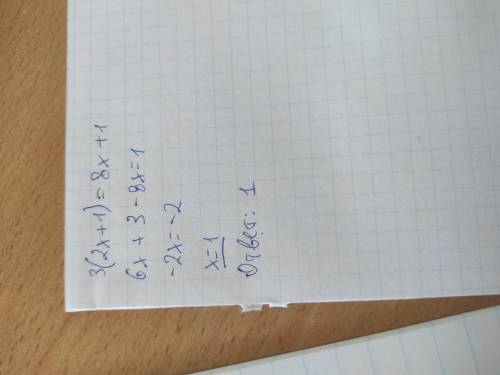 3(2x+1)=8x+1
6x+3-8x=1
-2x=-2
x=1
Ответ: 1